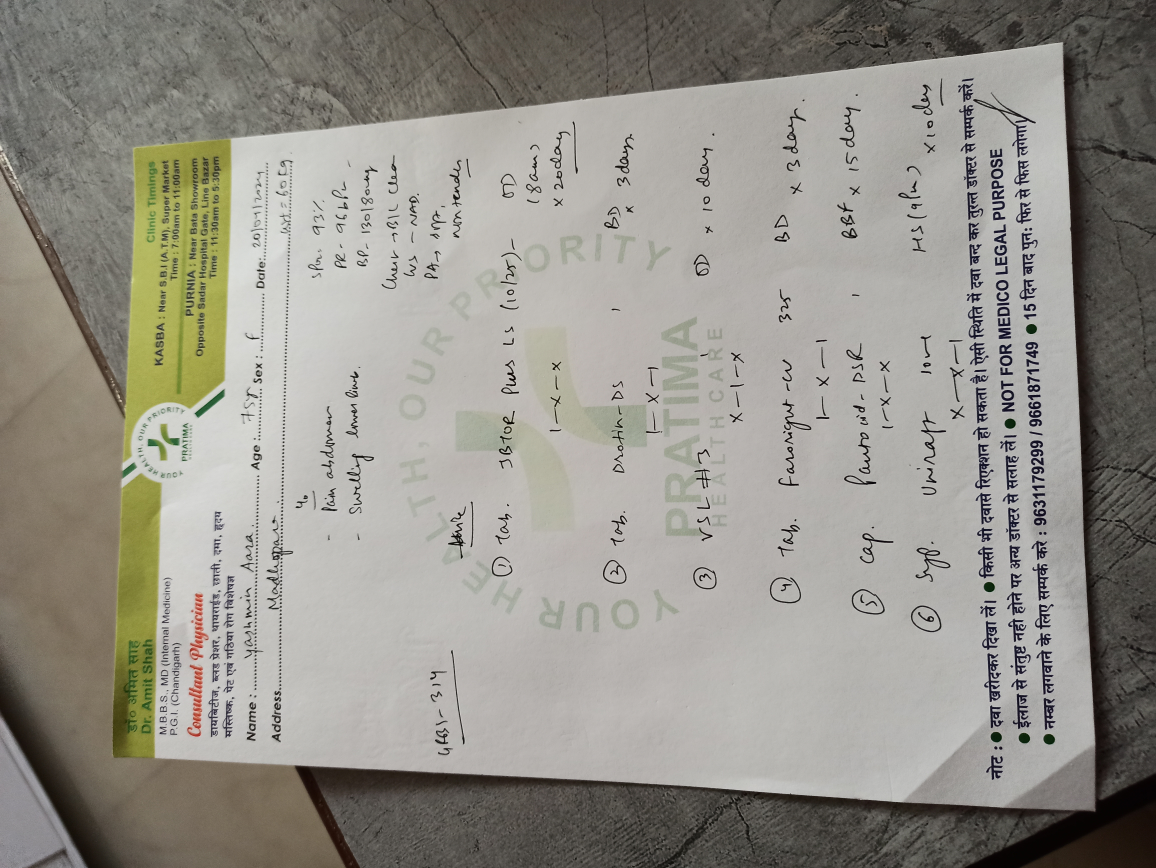 डॉ० अमित साह
Dr. Amit Shah
M.B.B.S., MD (Internal Medicine)
P.G.I. (Chandigarh)
Consultant Physician
डायबिटीज, ब्लड प्रेशर, थायराईड, छाती, दमा, हृदय
मस्तिष्क, पेट एवं गठिया रोग विशेषज्ञ
YOUR HEALTH, OUR PRIORITY
PRATIMA
Clinic Timings
KASBA : Near S.B.I (A.T.M), Super Market
Time : 7:00am to 11:00am
PURNIA : Near Bata Showroom
Opposite Sadar Hospital Gate, Line Bazar
Time : 11:30am to 5:30pm
Name : Yashmin Aara Age : 75 Sex : F Date: 20/09/2024
Address Madhopara wt = 60 kg
c/o
- Pain abdomen
- Swelling lower limb.
SPO2 93%
PR - 96 bpm
BP - 130/80 mmHg
Chest → B/L Clear
CVS - NAD.
PA → soft,
non tender
GRBS - 314
Advice
① Tab. Plus LS (10/25) - OD
1 - x - x (8am)
x 20 day
② Tab. Drotin-DS , BD x 3 days
1 - x - 1
③ VSL #3 OD x 10 day.
x - 1 - x
④ Tab. 325 BD x 3 day.
1 - x - 1
⑤ Cap. Pantocid-DSR , BBF x 15 day.
1 - x - x
⑥ Syp. 10ml HS (9pm) x 10 day
x - x - 1
YOUR HEALTH, OUR PRIORITY
PRATIMA
HEALTHCARE
नोट : ● दवा खरीदकर दिखा लें। ● किसी भी दवासे रिएक्शन हो सकता है। ऐसी स्थिति में दवा बन्द कर तुरन्त डॉक्टर से सम्पर्क करें।
● ईलाज से संतुष्ट नही होने पर अन्य डॉक्टर से सलाह लें। ● NOT FOR MEDICO LEGAL PURPOSE
● नम्बर लगवाने के लिए सम्पर्क करे : 9631179299 / 9661871749 ● 15 दिन बाद पुनः फिर से फिस लगेगा।